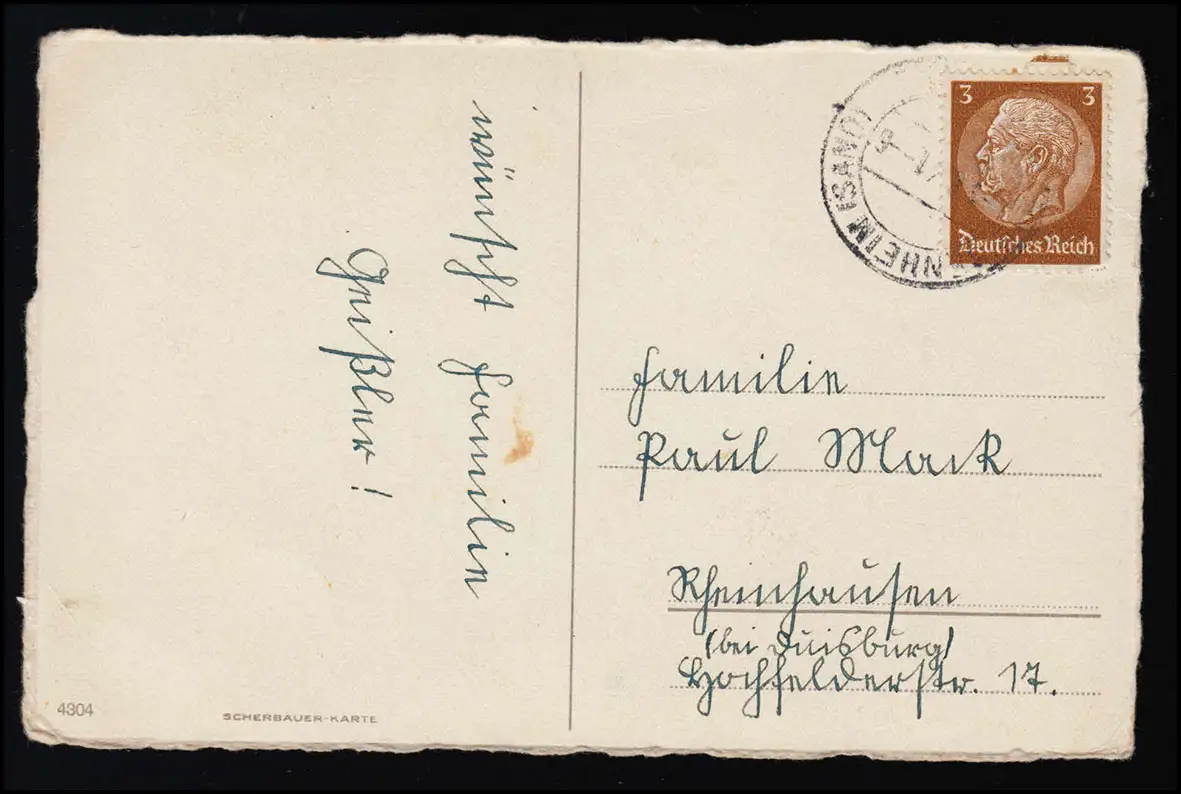 wünscht Familie
Geißler!
3 3
Deutsches Reich
ENHEIM (SAND)
Familie
Paul Mack
Rheinhausen
(bei Duisburg)
Hochfelderstr. 17.
4304
SCHERBAUER-KARTE